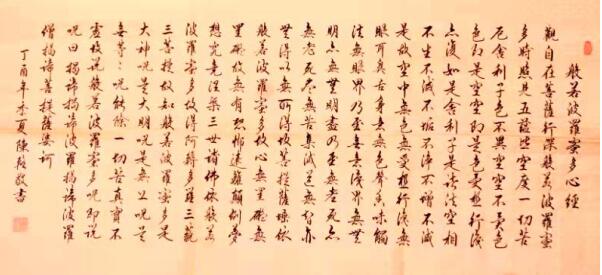 般若波羅蜜多心經
觀自在菩薩行深般若波羅蜜
多時照見五蘊皆空度一切苦
厄舍利子色不異空空不異色
色即是空空即是色受想行識
亦復如是舍利子是諸法空相
不生不滅不垢不淨不增不減
是故空中無色無受想行識無
眼耳鼻舌身意無色聲香味觸
法無眼界乃至無意識界無無
明亦無無明盡乃至無老死亦
無老死盡無苦集滅道無智亦
無得以無所得故菩提薩埵依
般若波羅蜜多故心無罣礙無
罣礙故無有恐怖遠離顛倒夢
想究竟涅槃三世諸佛依般若
波羅蜜多故得阿耨多羅三藐
三菩提故知般若波羅蜜多是
大神咒是大明咒是無上咒是
無等等咒能除一切苦真實不
虛故說般若波羅蜜多咒即說
咒曰揭諦揭諦波羅揭諦波羅
僧揭諦菩提薩婆訶
丁酉年季夏陳敬書